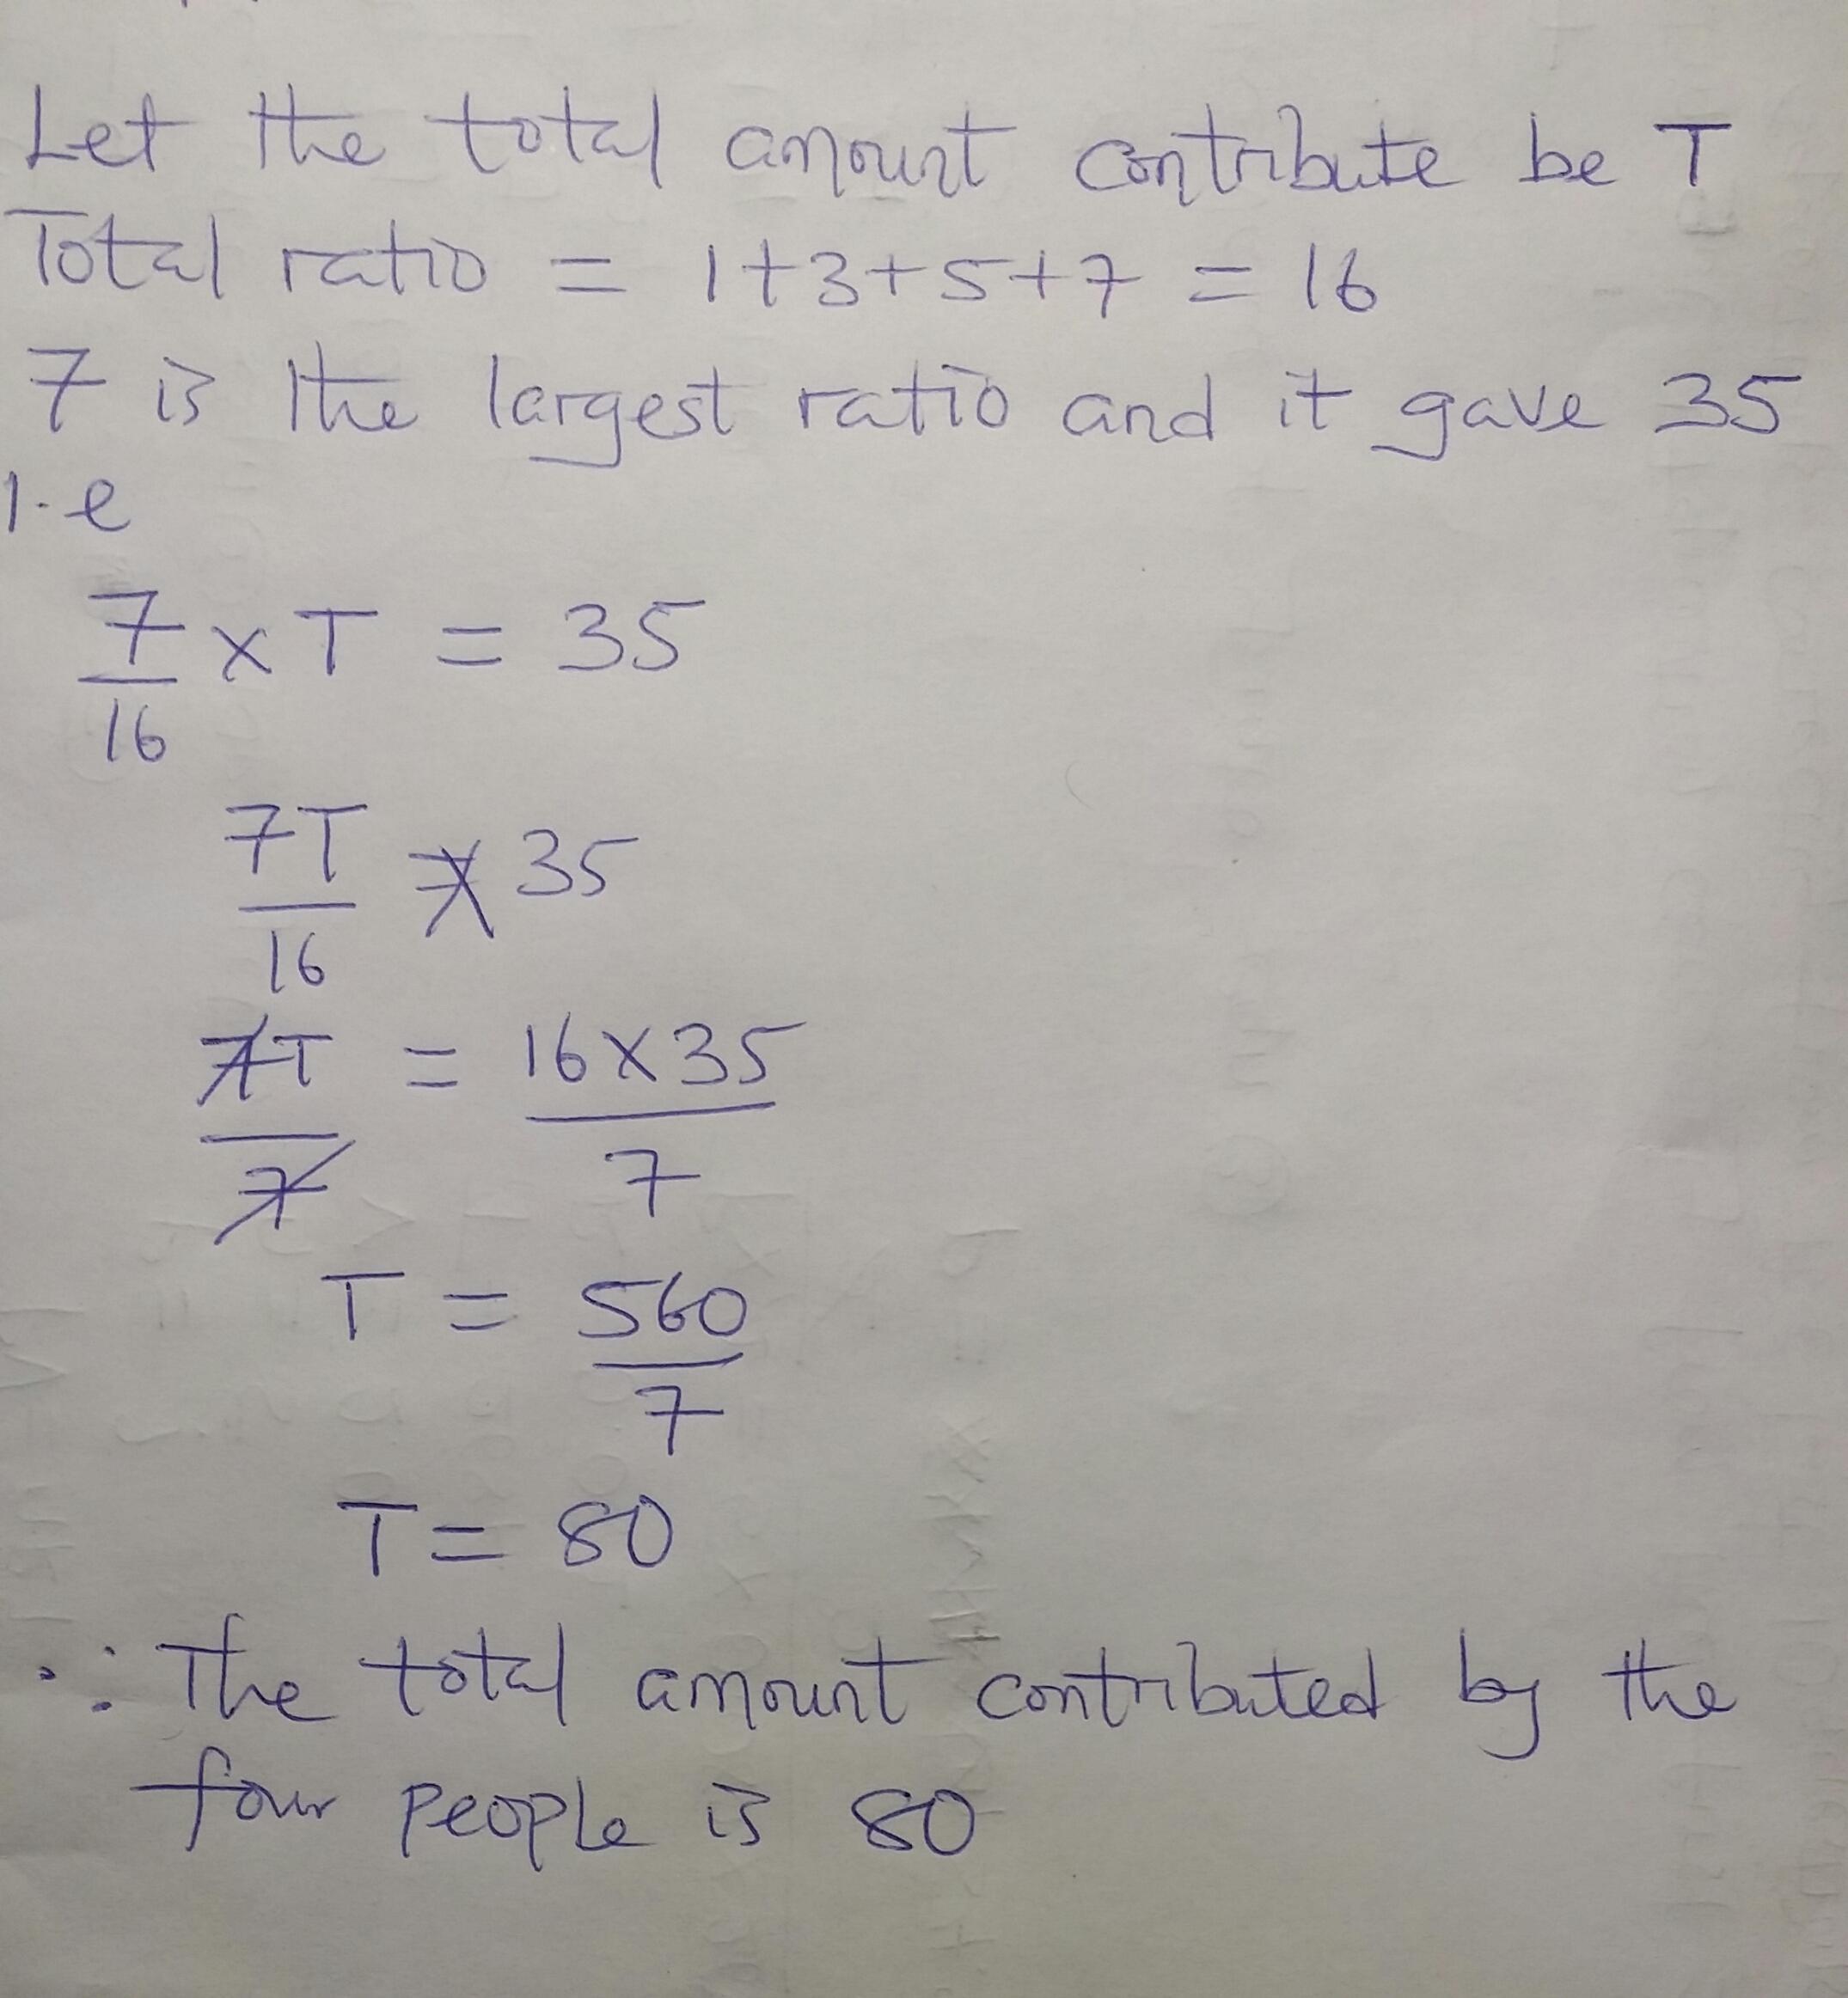 Let the total amount contribute be T
Total ratio = 1+3+5+7 = 16
7 is the largest ratio and it gave 35
I.e
7/16 × T = 35
7T/16 = 35
7T/7 = 16×35/7
T = 560/7
T = 80
∴ The total amount contributed by the
four people is 80